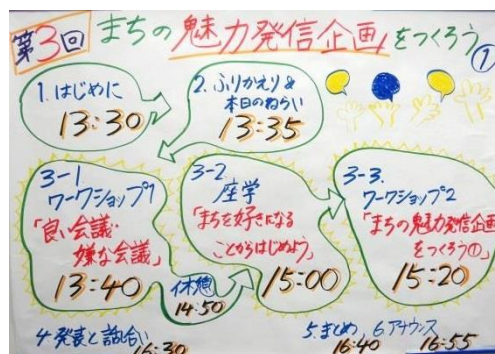 第3回 まちの魅力発信企画をつくろう①
1.はじめに
13:30
2.ふりかえり&
本日のねらい
13:35
3-1
ワークショップ1
「良い会議・
嫌な会議」
13:40
休憩
14:50
3-2
座学
「まちを好きになる
ことからはじめよう」
15:00
3-3.
ワークショップ2
「まちの魅力発信企画
をつくろう①」
15:20
4.発表と話し合い
16:30
5.まとめ
16:40
6.アナウンス
16:55